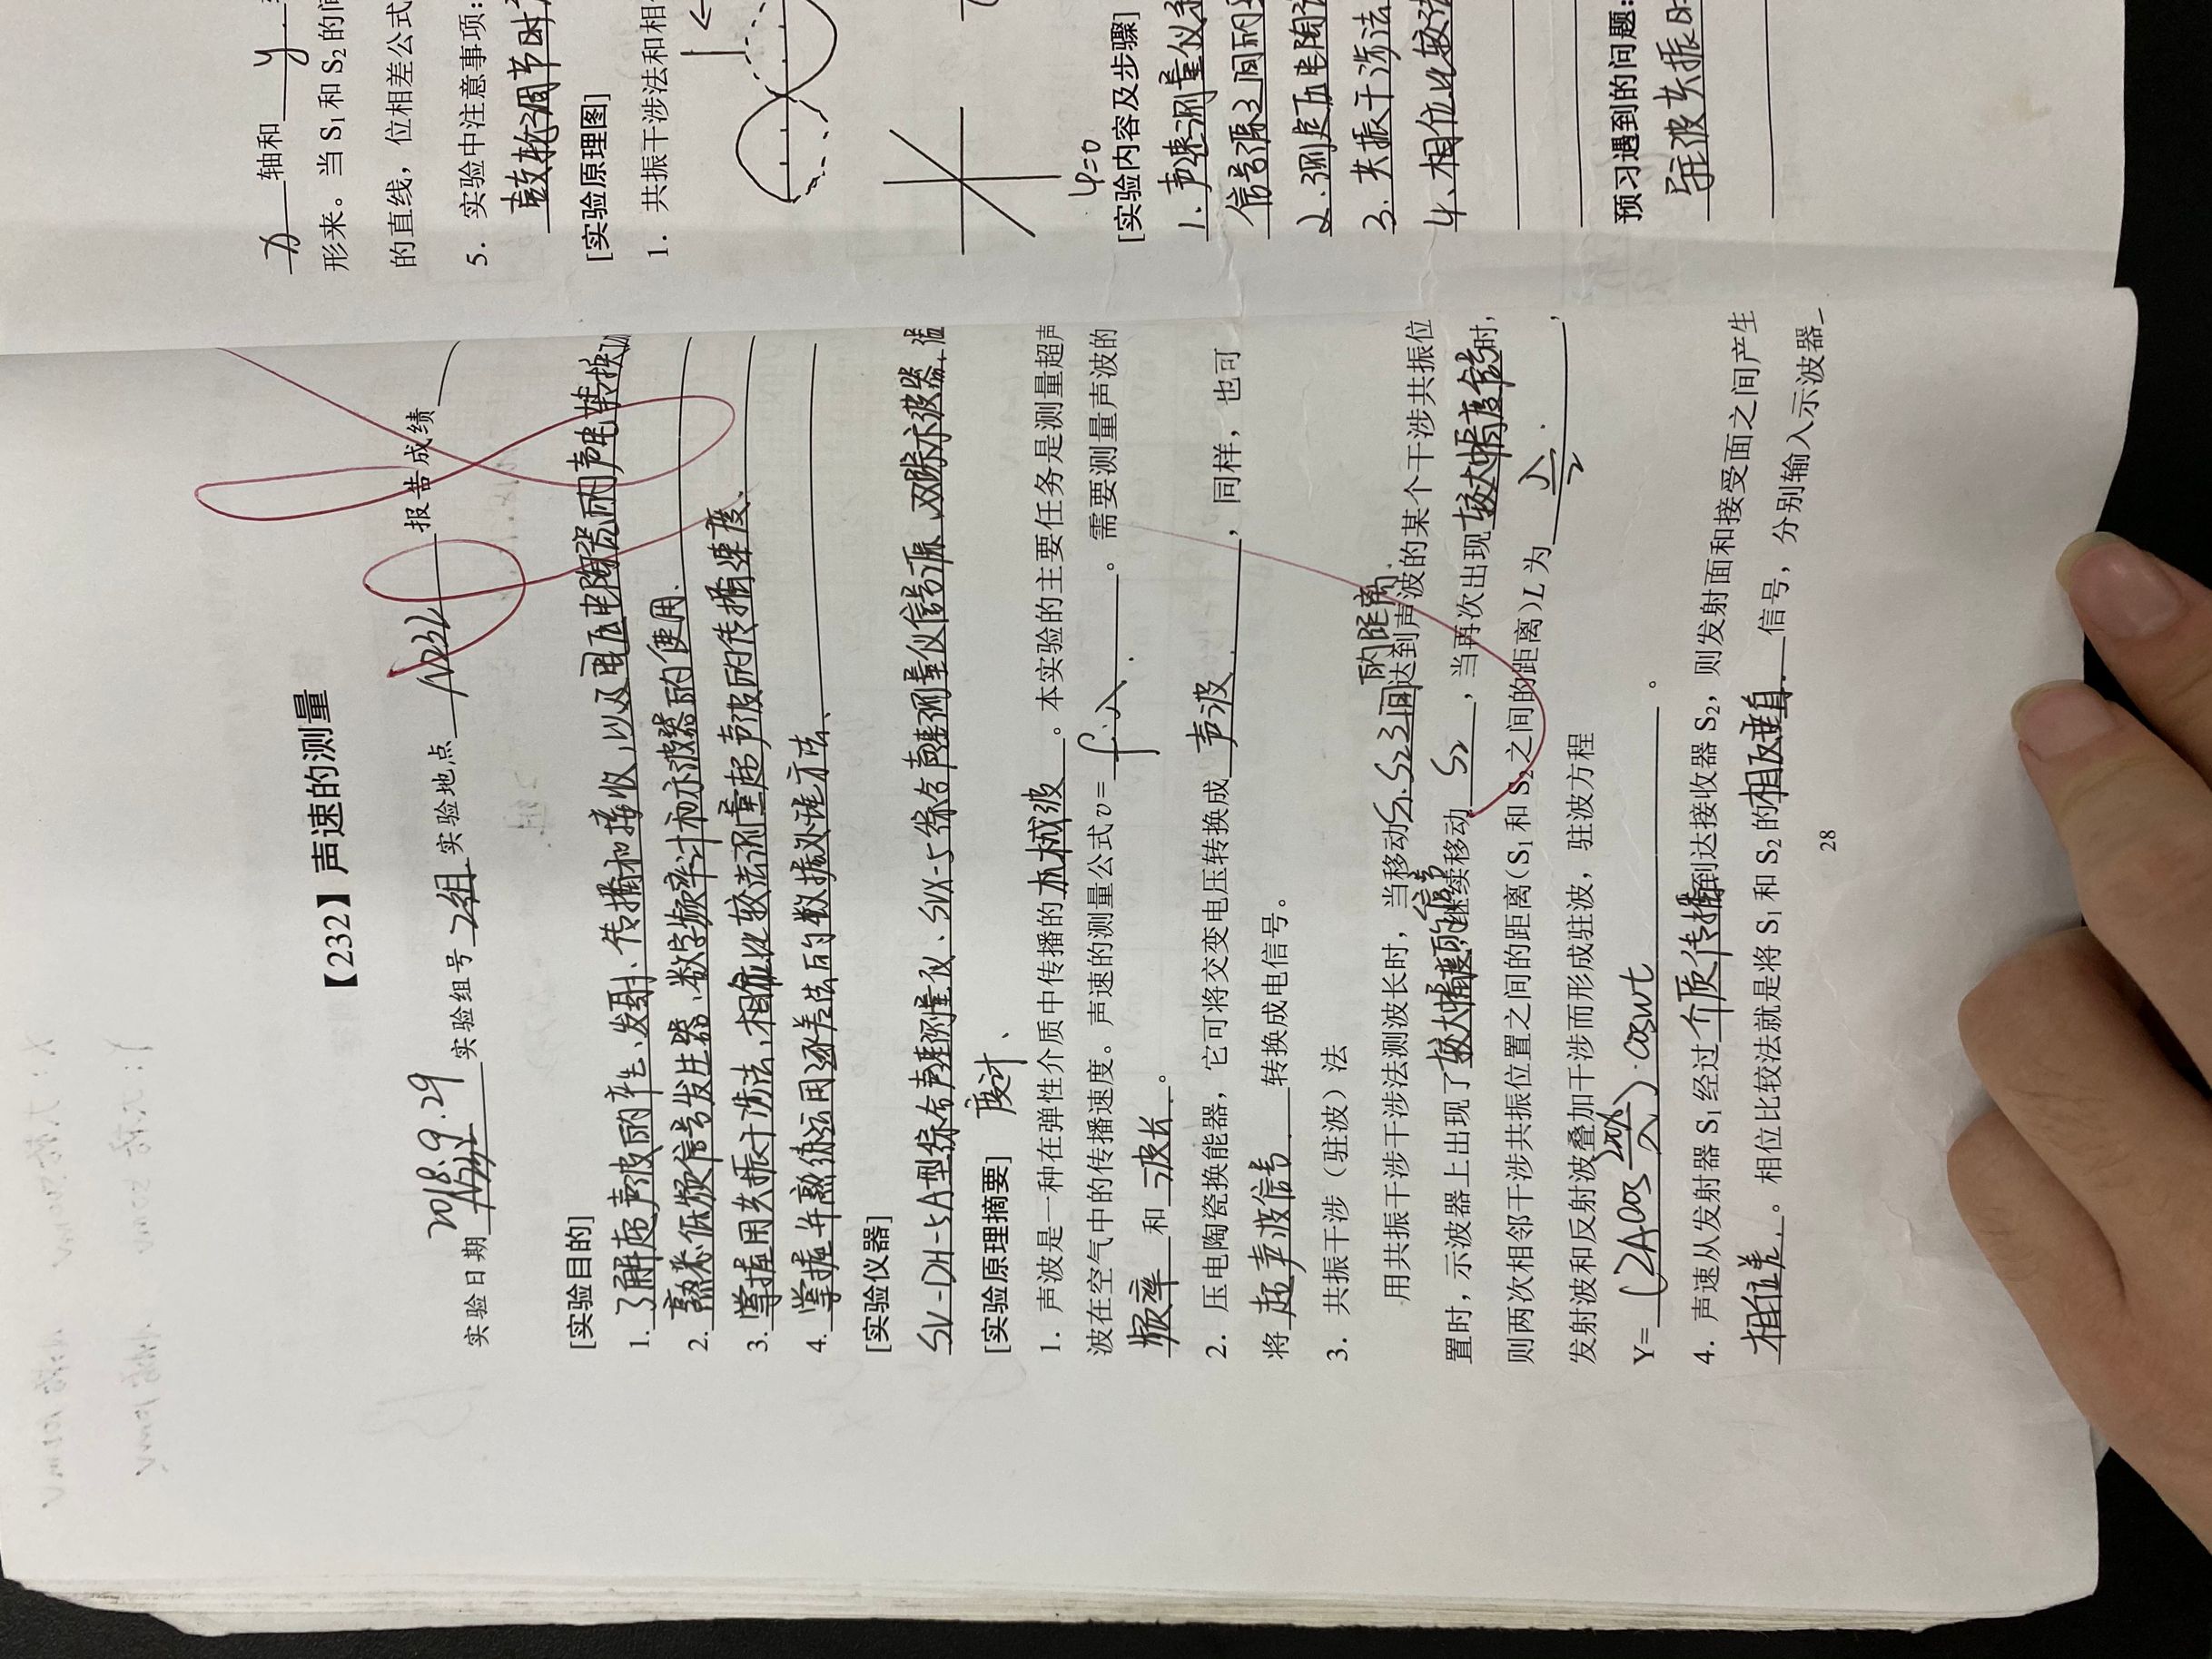 【232】声速的测量
98
2018.9.29
实验日期 N232 实验组号 2组 实验地点 N232 报告成绩
[实验目的]
1. 了解超声波的产生、发射、传播和接收,以及压电陶瓷的声电转换
2. 熟悉低频信号发生器、数字频率计和示波器的使用.
3. 掌握用共振干涉法、相位比较法测量超声波的传播速度.
4. 掌握并熟练运用逐差法的数据处理方法、
[实验仪器]
SV-DH-5A型综合声速测量仪、SVX-5综合声速测量仪信号源、双踪示波器、温
[实验原理摘要] 度计、
1. 声波是一种在弹性介质中传播的 机械波 。本实验的主要任务是测量超声
波在空气中的传播速度。声速的测量公式v= f·λ. 。需要测量声波的
频率 和 波长. 。
2. 压电陶瓷换能器,它可将交变电压转换成 声波. ,同样,也可
将 超声波信号. 转换成电信号。
3. 共振干涉(驻波)法
用共振干涉干涉法测波长时,当移动S₁.S₂之间的距离.达到声波的某个干涉共振位
置时,示波器上出现了较大幅度的信号,继续移动 S₂ ,当再次出现较大幅度信号时,
则两次相邻干涉共振位置之间的距离(S₁和S₂之间的距离)L为 λ/2. ,
发射波和反射波叠加干涉而形成驻波,驻波方程
Y= (2Acos 2πx/λ)·coswt 。
4. 声速从发射器S₁经过 介质传播到达接收器S₂,则发射面和接受面之间产生
相位差. 。相位比较法就是将S₁和S₂的相反垂直. 信号,分别输入示波器
28
x 轴和 y.
形来。当S₁和S₂的间
的直线,位相差公式
5. 实验中注意事项:
鼓轮调节时
[实验原理图]
1. 共振干涉法和相
φ=0
[实验内容及步骤]
1. 声速测量仪系
信号源之间的
2. 测定压电陶
3. 共振干涉法
4. 相位比较法
预习遇到的问题:
驻波共振时